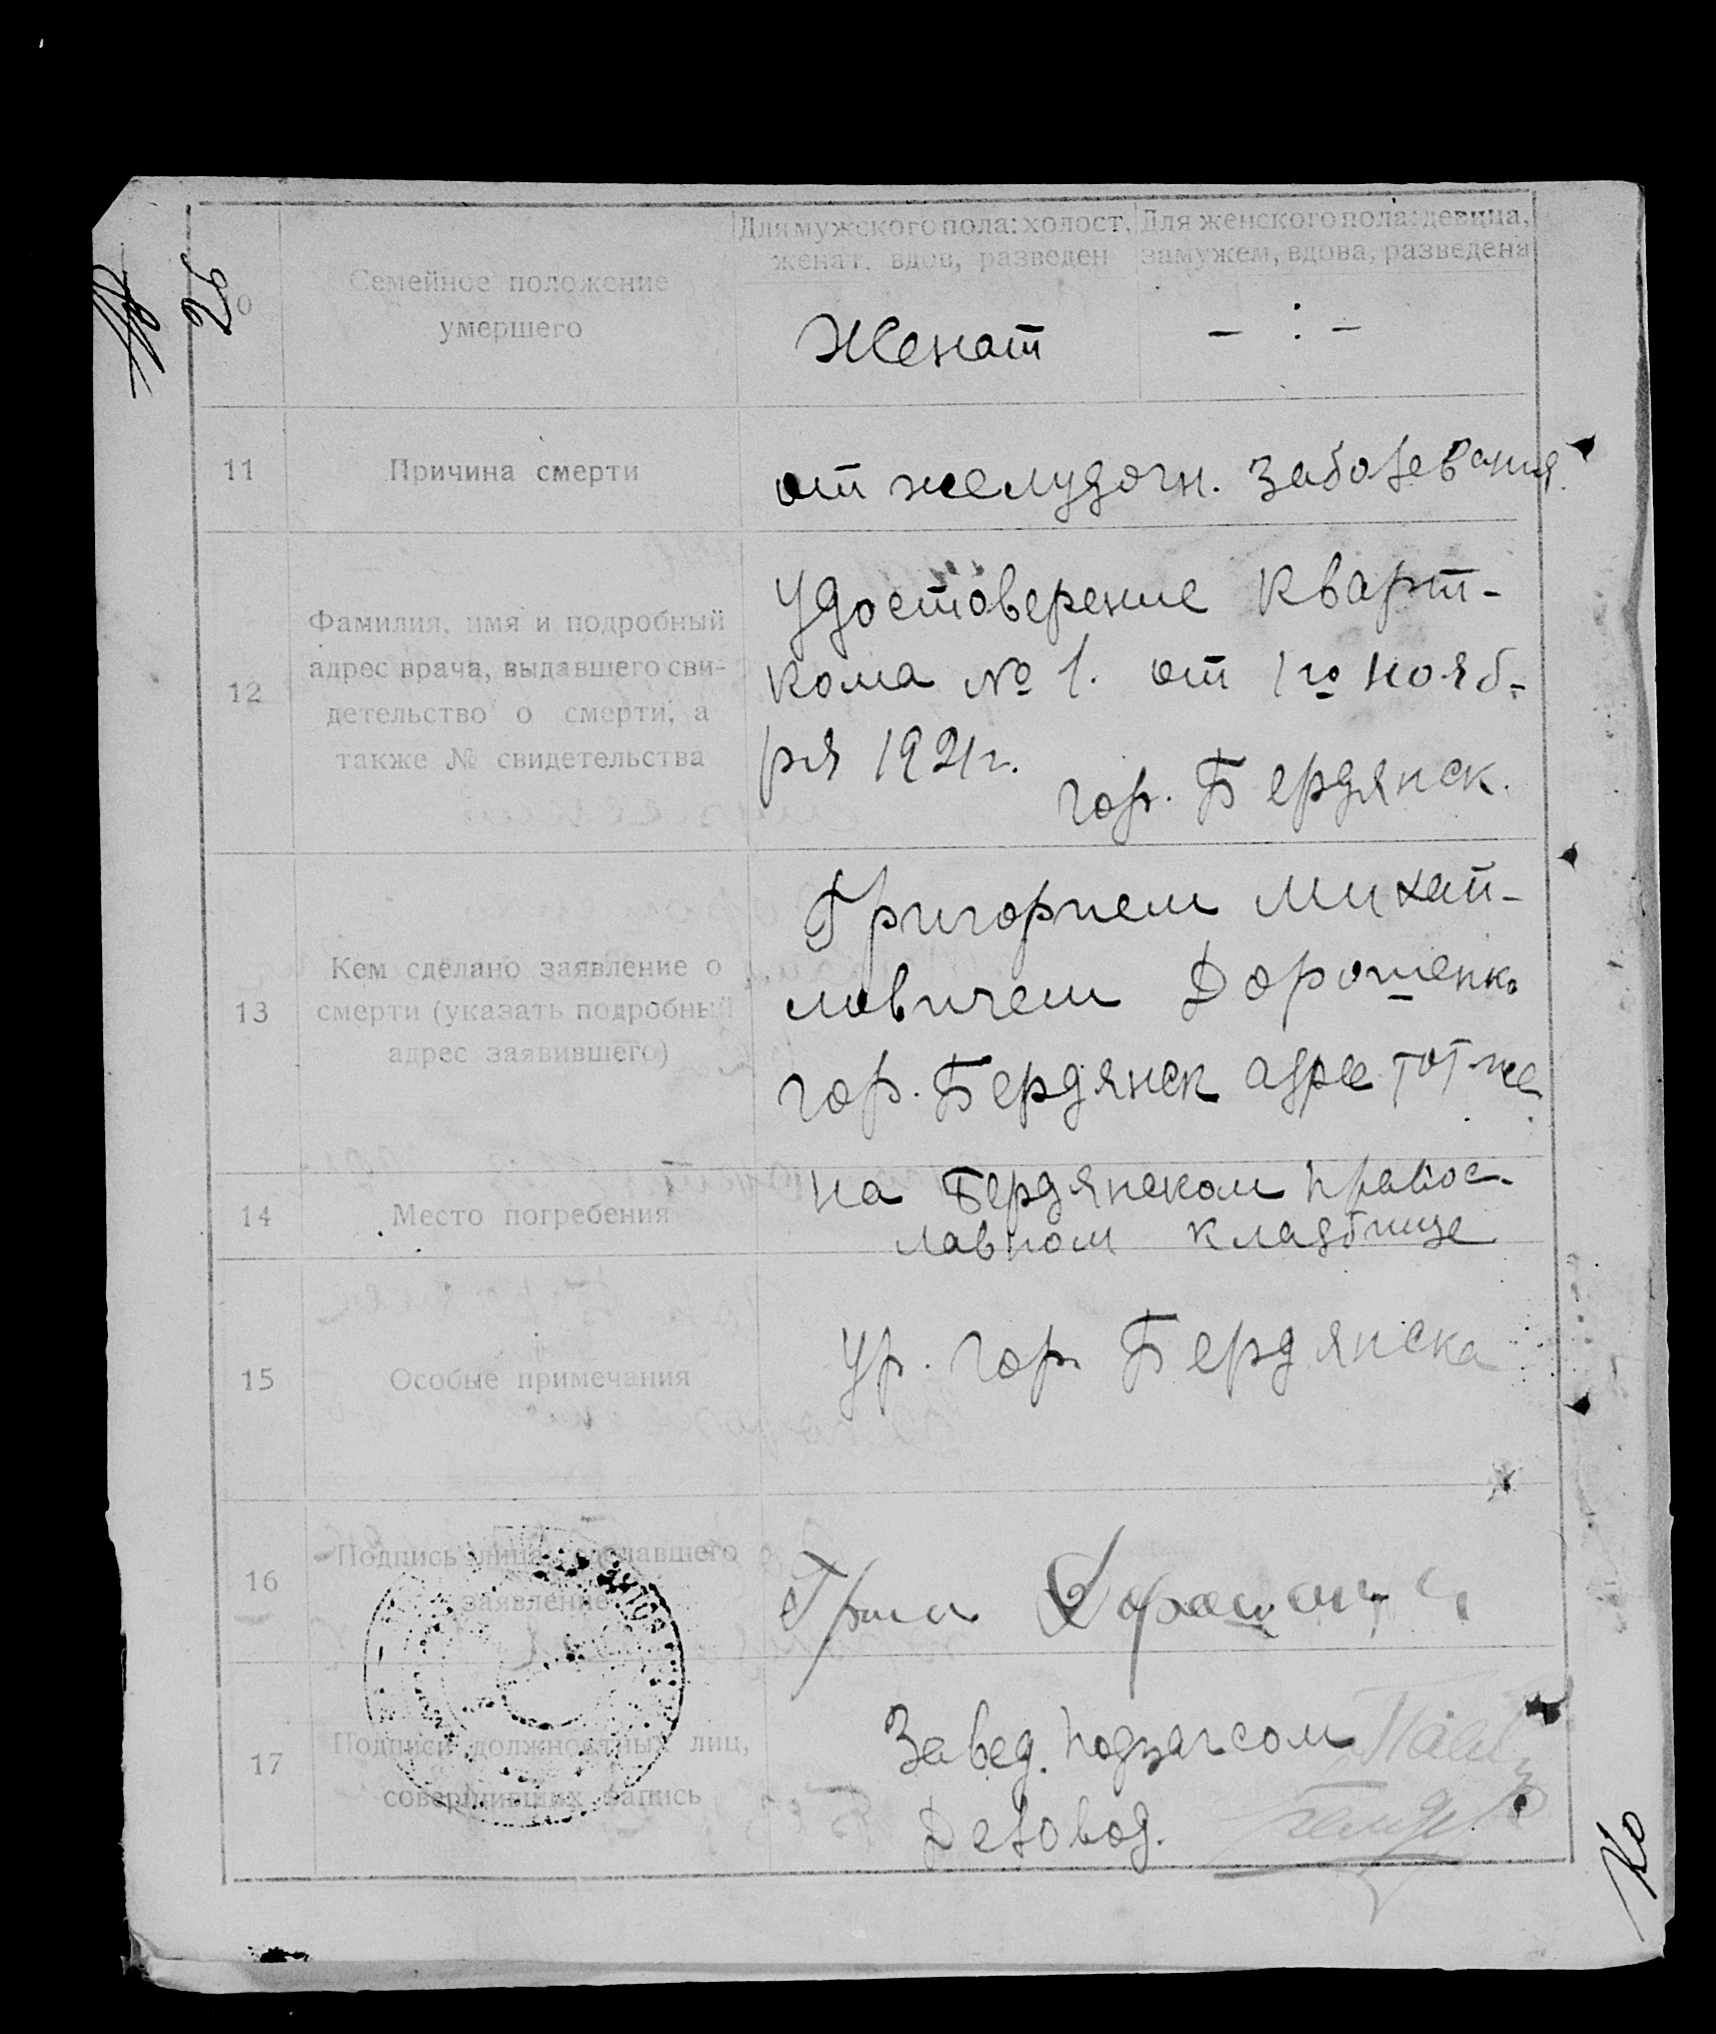 26
10
Семейное положение
умершего
Для мужского пола: холост,
женат, вдов, разведен
Для женского пола: девица,
замужем, вдова, разведена
Женат
– : –
11
Причина смерти
от желудочн. заболевания.
12
Фамилия, имя и подробный
адрес врача, выдавшего сви-
детельство о смерти, а
также № свидетельства
Удостоверение кварт-
кома № 1. от 1го нояб-
ря 1921г.
гор. Бердянск.
13
Кем сделано заявление о
смерти (указать подробный
адрес заявившего)
Григорием Михай-
ловичем Дорошенко
гор. Бердянск адрес тот-же
14
Место погребения
на Бердянском правос-
лавном кладбище
15
Особые примечания
Ур. гор. Бердянска
16
Подпись лица, сделавшего
заявление
17
Подписи должностных лиц,
совершивших запись
Завед. подзагсом
Деловод.